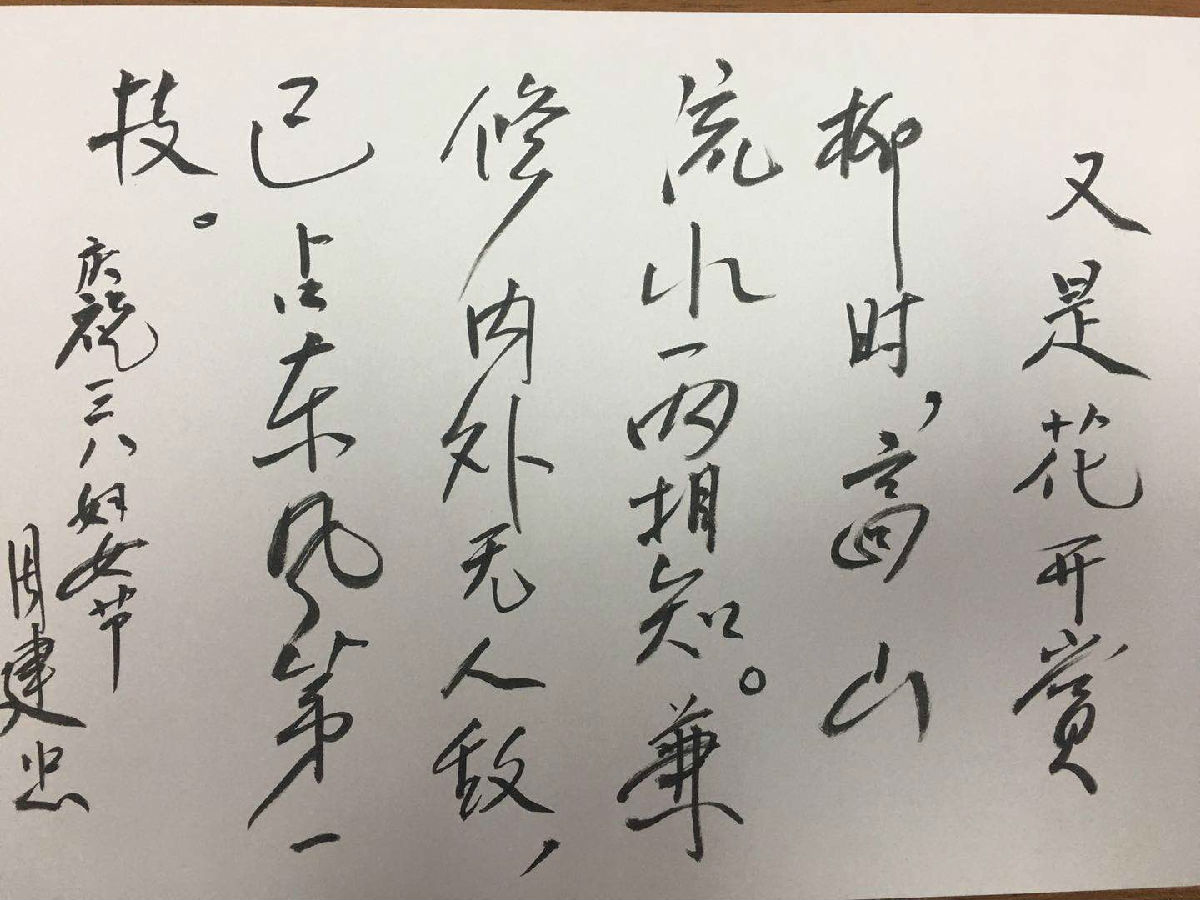 又是花开赏
柳时,高山
流水两相知。兼
修内外无人敌,
已占东风第一
技。
庆祝三八妇女节
周建忠